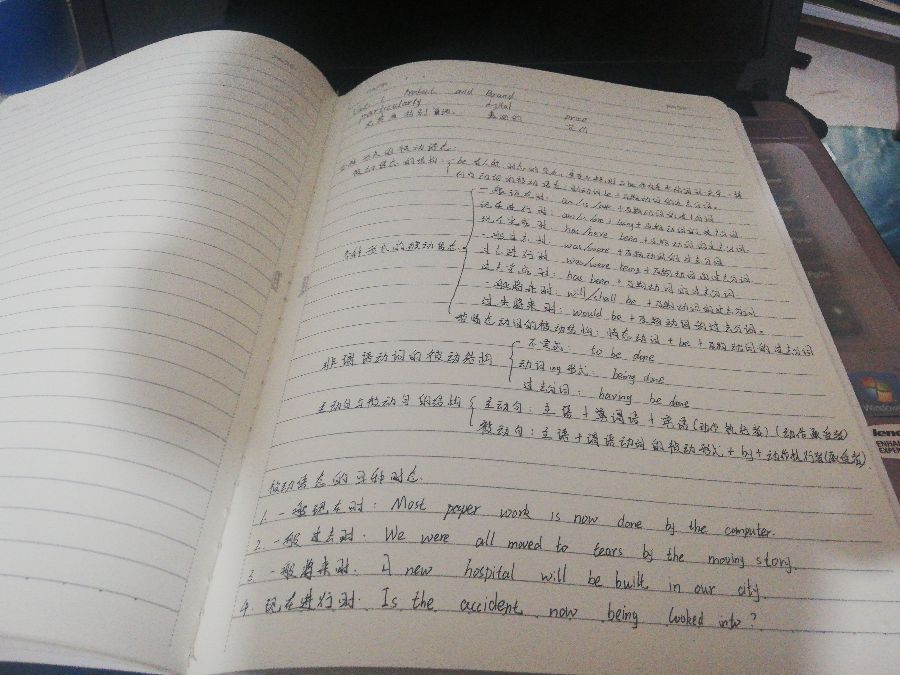 Unit 1 Product and Brand
particularly digital
尤其是 特别重视 数码的
被动语态的结构:
一般现在时: am/is/are + 及物动词的过去分词
现在进行时: am/is/are + being + 及物动词的过去分词
现在完成时: has/have been + 及物动词的过去分词
一般过去时: was/were + 及物动词的过去分词
各种形式的被动语态
过去进行时: was/were being + 及物动词的过去分词
过去完成时: has been + 及物动词的过去分词
一般将来时: will/shall be + 及物动词的过去分词
过去将来时: would be + 及物动词的过去分词
情态动词的被动结构: 情态动词 + be + 及物动词的过去分词
不定式: to be done
非谓语动词的被动结构
动词ing形式: being done
过去分词: having be done
主动句与被动句的结构
主动句: 主语 + 谓语 + 宾语(动作执行者)(动作承受者)
被动句: 主语 + 谓语动词的被动形式 + by + 动作执行者(承受者)
被动语态的四种时态.
1. 一般现在时: Most paper work is now done by the computer.
2. 一般过去时: We were all moved to tears by the moving story.
3. 一般将来时. A new hospital will be built in our city
4. 现在进行时. Is the accident now being looked into?
Windows
leno
ENHAN
EXPER